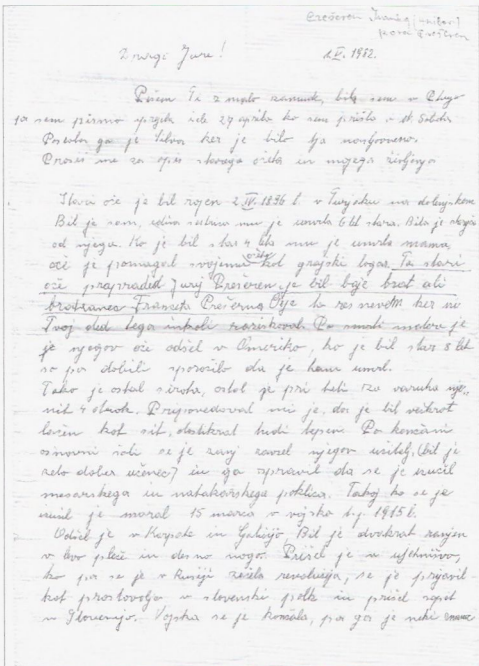 Dragi Jure! 1.V. 1982.
Pišem Ti z malo zamude, bila sem v Čikagu
pa sem pismo prejela šele 27 aprila ko sem prišla v
Poslala ga je ker je bilo tja
Prosiš me za opis starega očeta in njegovega življenja
Stari oče je bil rojen 2.IV.1896 l. v Turjaku na dolenjskem
Bil je sam, edina sestra mu je umrla 6 let stara. Bila je starejša
od njega. Ko je bil star 4 leta mu je umrla mama,
oče je pomagal svojemu očetu kot grajski logar. Ta stari
oče prapraded Jurij Prešeren je bil baje brat ali
bratranec Franceta Prešerna. To za res ne vem ker ni
Tvoj ded tega nikoli raziskoval. Po smrti matere je
je njegov oče odšel v Ameriko, ko je bil star 8 let
so pa dobili sporočilo da je tam umrl.
Tako je ostal sirota, ostal je pri teti za varuha
nih 4 otrok. Pripovedoval mi je, da je bil večkrat
lačen kot sit, dostikrat tudi tepen. Po končani
osnovni šoli se je zanj zavzel njegov učitelj, (bil je
zelo dober učenec) in ga spravil da se je izučil
mesarskega in natakarskega poklica. Takoj ko se je
izučil je moral 15 marca v vojsko t.j. 1915 l.
Odšel je v Karpate in Galicijo. Bil je dvakrat ranjen
v levo pleče in desno nogo. Prišel je v ujetništvo,
ko pa se je v Rusiji začela revolucija, se je prijavil
kot prostovoljec v slovenski polk in prišel zopet
v Slovenijo. Vojska se je končala, pa ga je neki